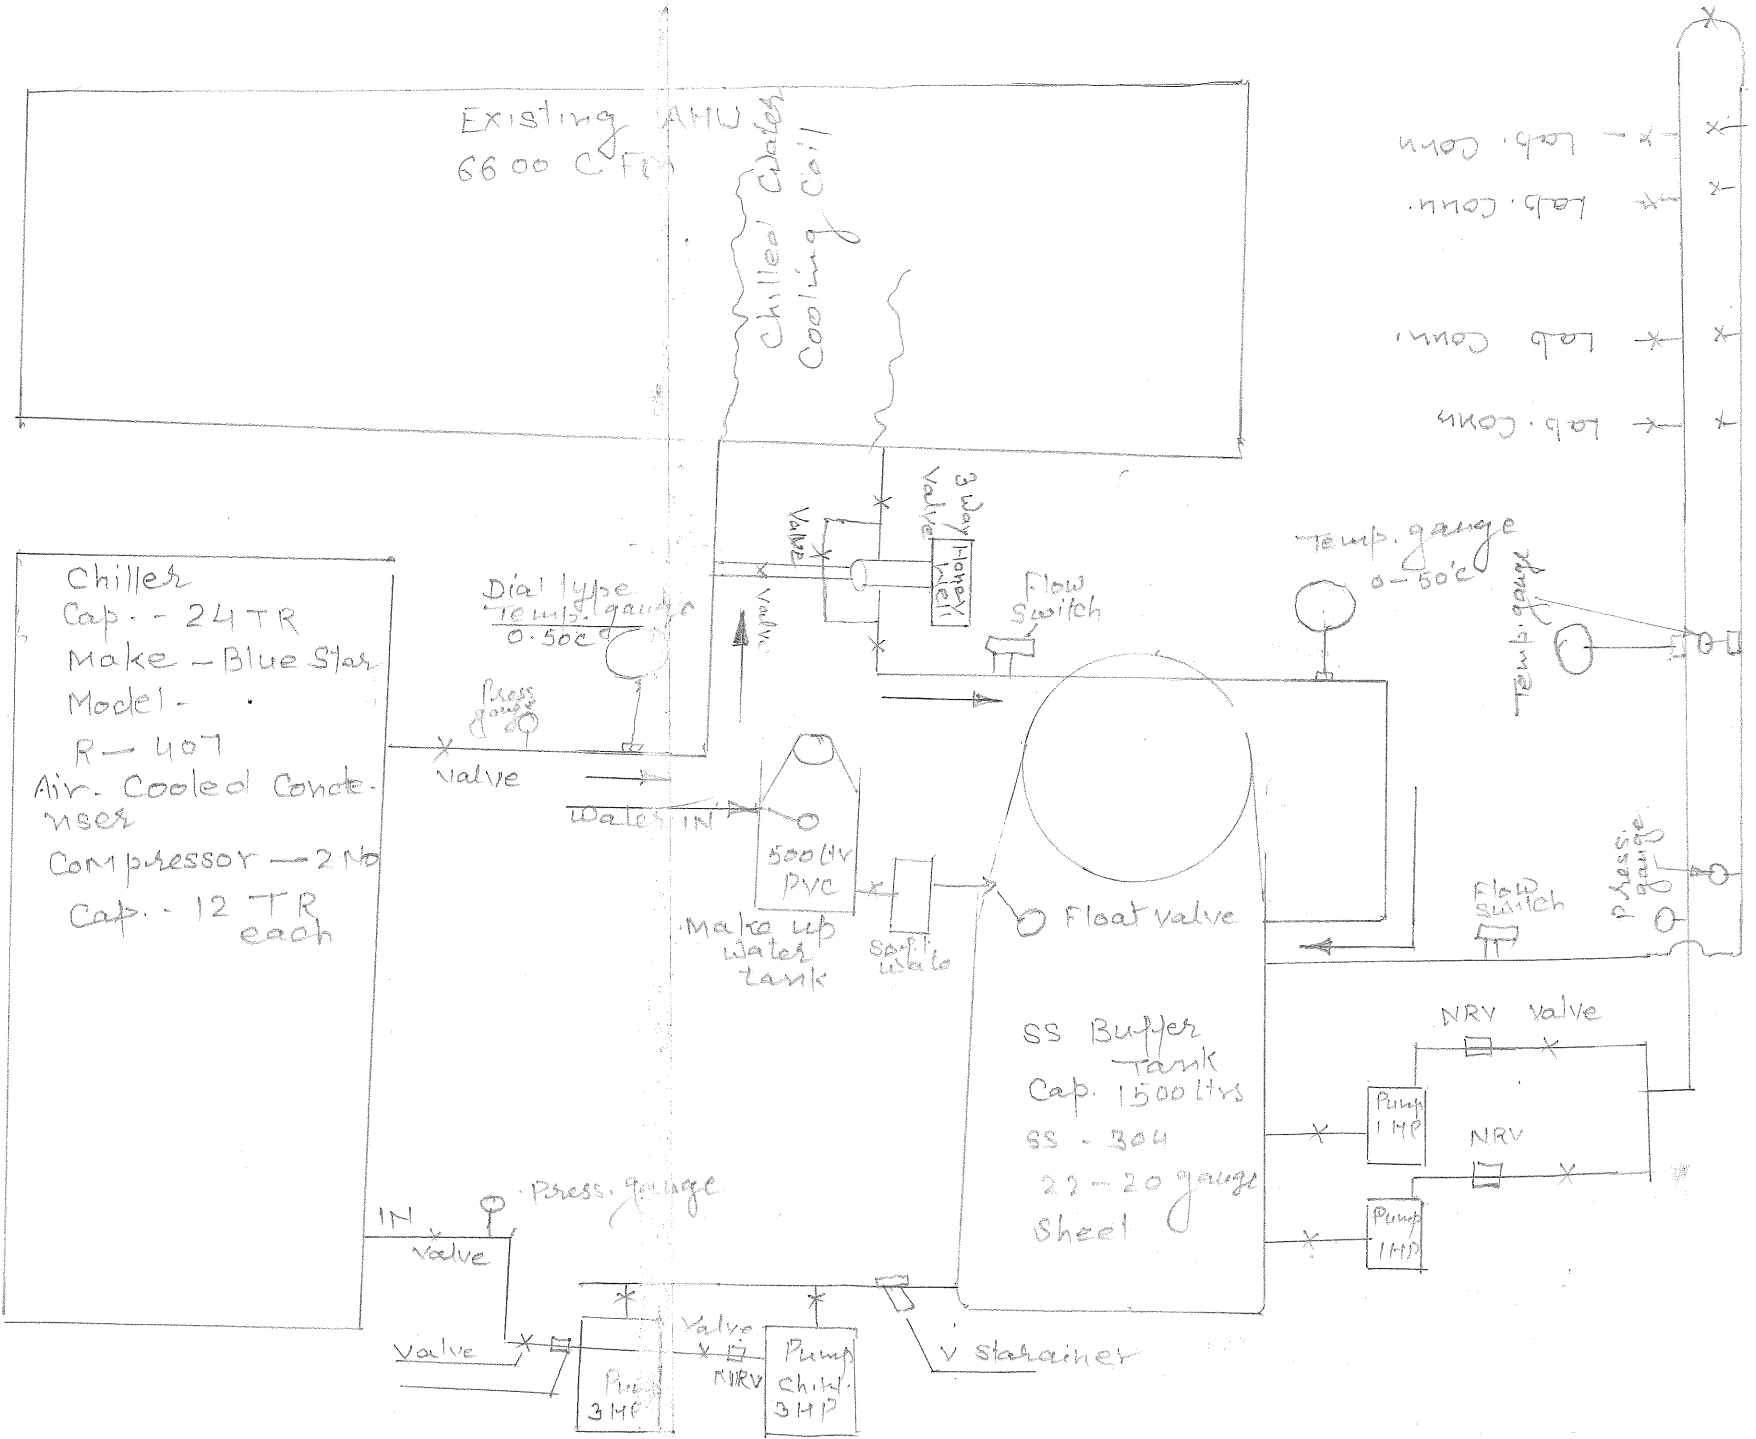 Existing AHU
6600 CFM
Chilled Water
Cooling Coil
Lab. Conn
Lab. Conn.
Lab Conn.
Lab. Conn
3 Way
Valve
Honey
Well
Valve
Valve
Flow
Switch
Temp. gauge
0-50°C
Temp. gauge
Chiller
Cap. - 24 TR
Make - Blue Star
Model -
R - 407
Air-Cooled Conde-
nser
Compressor - 2 No
Cap. - 12 TR
each
Dial type
Temp. gauge
0-50c°
Press
gauge
Valve
Water IN
500 Ltr
PVC
Make up
Water
tank
Soft
Wate
Float valve
Press
gauge
Flow
Switch
SS Buffer
Tank
Cap. 1500 Ltrs
SS - 304
22-20 gauge
Sheet
NRV Valve
Pump
1 HP
NRV
Pump
1HP
IN
Press. gauge
Valve
Valve
Pum
3HP
Valve
NRV
Pump
3HP
V starainer